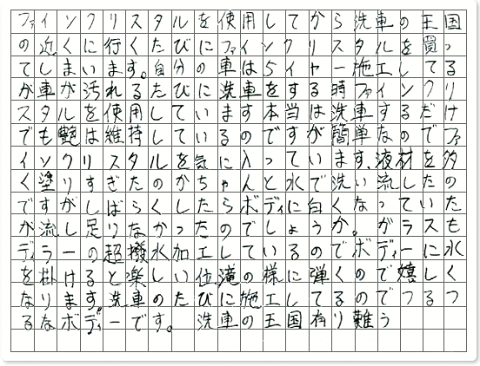 ファインクリスタルを使用してから洗車の王国
の近くに行くたびにファインクリスタルを買っ
てしまいます。自分の車は5イヤー施工してる
が車が汚れるたびに洗車をする時ファインクリ
スタルを使用しています本当は洗車するだけ
でも艶は維持しているのですが簡単なのでファ
インクリスタルを気に入っています、液材を多
く塗りすぎたのかちゃんと水で洗い流したの
ですがしばらくしたらボディに白くなっていた
が流し足りなかったのでしょうか。ガラスも
ディラーの超撥水加工しているのでボディーに水
を掛けると楽しい位滝の様に弾くので嬉しく
なります。洗車のたびに施工してるのでつるつ
るなボディーです。 洗車の王国有り難う